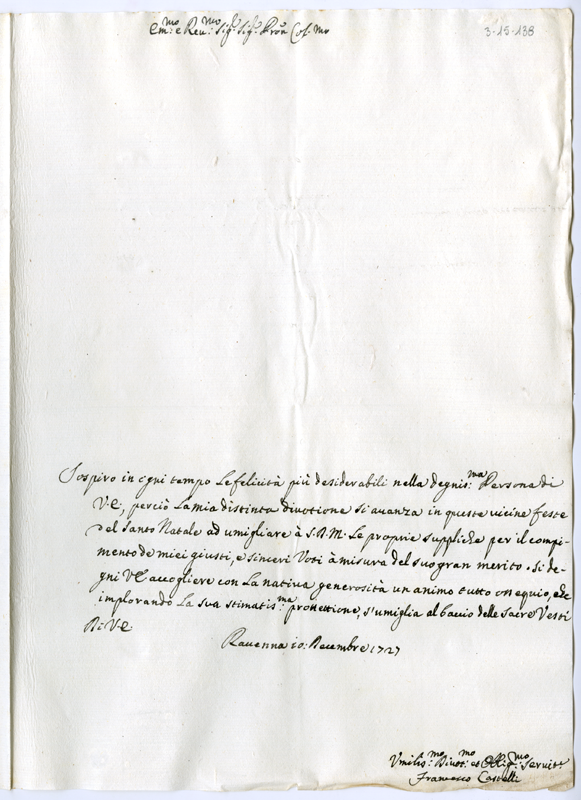 Em:mo e Reu:mo Sig:r Sig:r Pron Col:mo
3-15-138
Sospiro in ogni tempo Le felicità più desiderabili nella degnis:ma Persona di
V.E., perciò La mia distinta divotione si auanza in queste vicine feste
del Santo Natale ad umigliare à S.D.M. Le proprie suppliche per il compi-
mento de miei giusti, e sinceri Voti à misura del suo gran merito. Si de-
gni VE accogliere con La nativa generosità un animo tutto ossequio, e
implorando La sua stimatis:ma protettione, s'umiglia al bacio delle Sacre Vesti
Di V.E.
Rauenna 10: Decembre 1727
Vmilis:mo Diuot:mo et Oblig:mo Seruit:e
Francesco Castelli